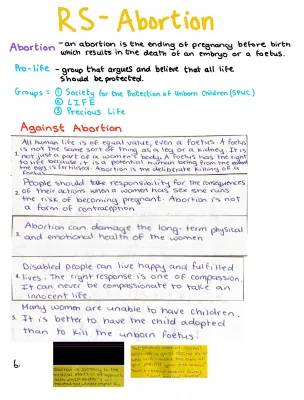 RS- Abortion
Abortion - an abortion is the ending of pregnancy before birth
which results in the death of an embryo or a foetus.
Pro-life - group that argues and believe that all life
should be protected.
Groups = ① Society for the Protection of Unborn Children (SPUC)
② LIFE
③ Precious Life
Against Abortion
All human life is of equal value, even a foetus. A foetus
is not the same sort of thing as a leg or a kidney. It is
not just a part of a women's body. A foetus has the right
to life because it is a potential human being from the
the egg is fertilised. Abortion is the deliberate killing of a
foetus.
People should take responsibility for the consequences
2. of their actions when a women has sex she runs
the risk of becoming pregnant. Abortion is not
a form of contraception
3. Abortion can damage the long-term physical
and emotional health of the women
Disabled people can live happy and fulfilled
4. lives. The right response is one of compassion.
It can never be compassionate to take an
innocent life.
Many women are unable to have children.
5. It is better to have the child adopted
than to kill the unborn foetus.
6.